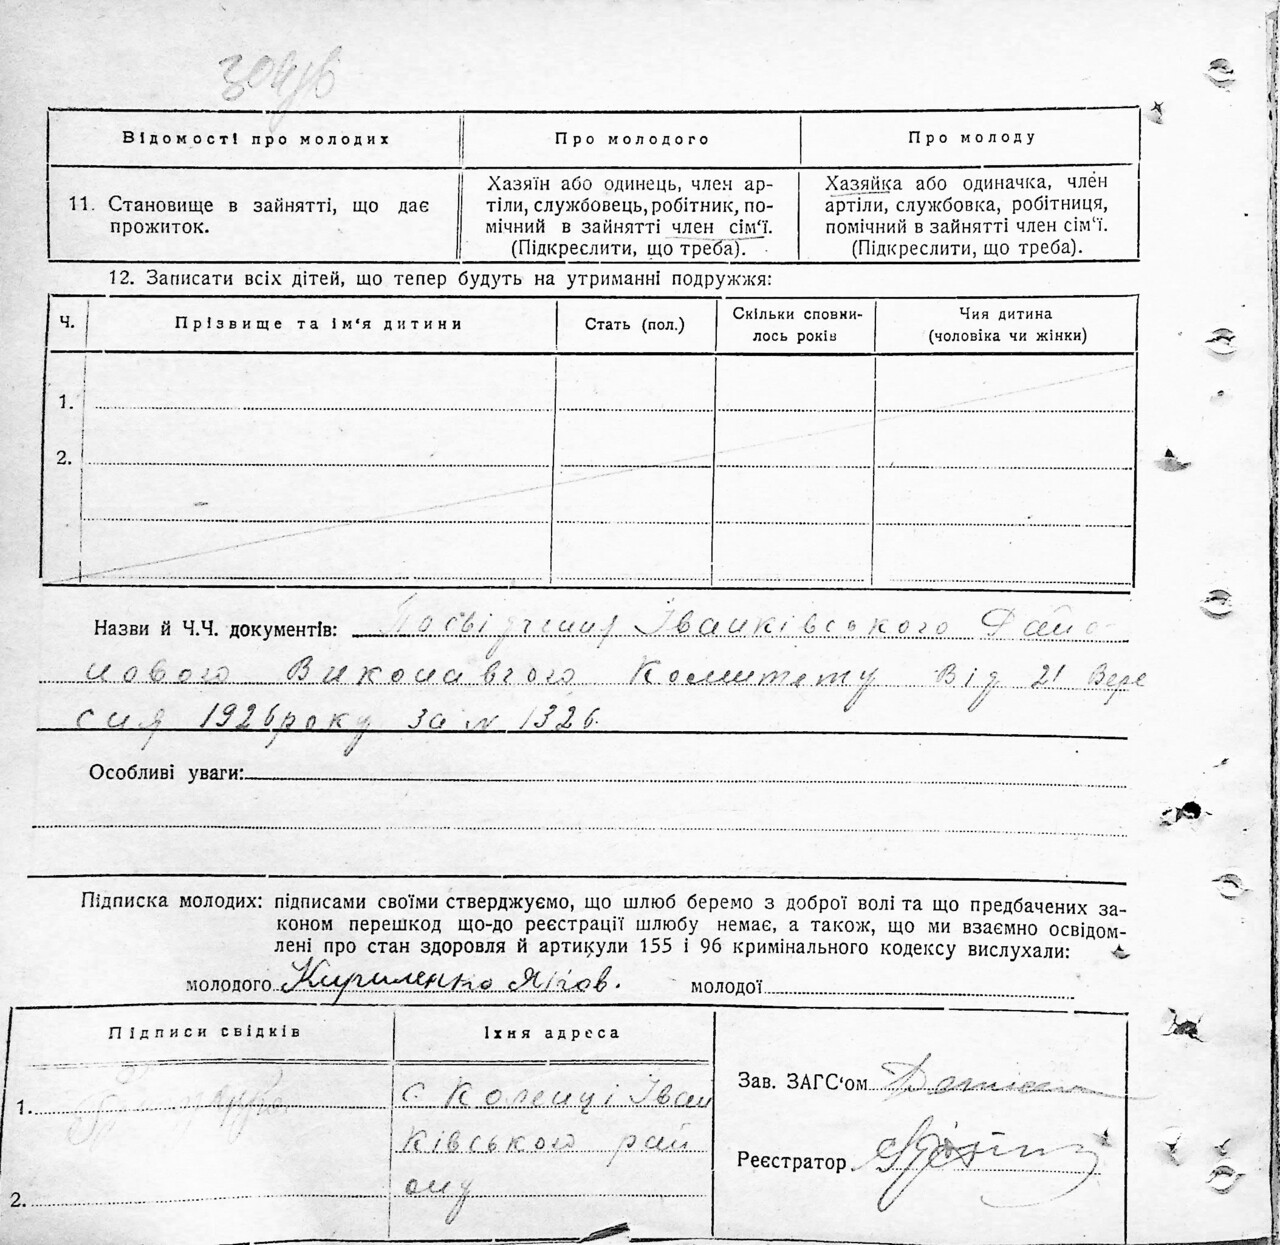 Відомості про молодих
Про молодого
Про молоду
11. Становище в зайнятті, що дає
прожиток.
Хазяїн або одинець, член ар-
тілі, службовець, робітник, по-
мічний в зайнятті член сім'ї.
(Підкреслити, що треба).
Хазяйка або одиначка, член
артіли, службовка, робітниця,
помічний в зайнятті член сім'ї.
(Підкреслити, що треба).
12. Записати всіх дітей, що тепер будуть на утриманні подружжя:
Ч.
Прізвище та ім'я дитини
Стать (пол.)
Скільки сповни-
лось років
Чия дитина
(чоловіка чи жінки)
1.
2.
Назви й Ч.Ч. документів: Посвідчення Іванківського Райо-
нового Виконавчого Комитету від 21 Вере
сня 1926 року за № 1326.
Особливі уваги:
Підписка молодих: підписами своїми стверджуємо, що шлюб беремо з доброї волі та що предбачених за-
коном перешкод що-до реєстрації шлюбу немає, а також, що ми взаємно освідом-
лені про стан здоровля й артикули 155 і 96 кримінального кодексу вислухали:
молодого Кириленко Яков. молодої
Підписи свідків
Їхня адреса
1.
с Коленці Іван
ківського рай
ону
2.
Зав. ЗАГС'ом
Реєстратор